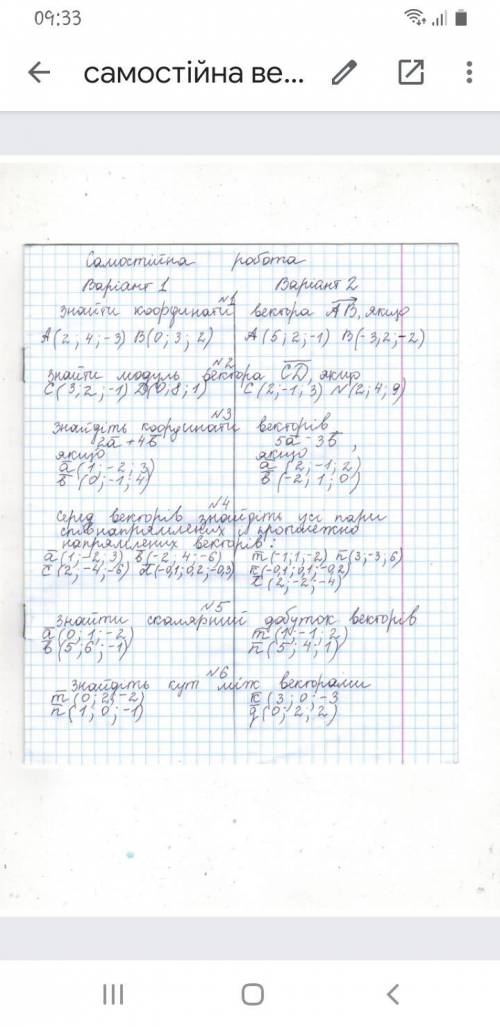 09:33
самостійна ве...
Самостійна робота
Варіант 1 Варіант 2
№1
Знайти координати вектора AB, якщо
A(2; 4; -3) B(0; 3; 2) A(5; 2; -1) B(-3; 2; -2)
№2
Знайти модуль вектора CD, якщо
C(3; 2; -1) D(0; 8; 1) C(2; -1; 3) N(2; 4; 9)
№3
Знайдіть координати векторів
2a + 4b 5a - 3b,
якщо якщо
a(1; -2; 3) a(2; -1; 2)
b(0; -1; 4) b(-2; 1; 0)
№4
Серед векторів знайдіть усі пари
співнапрямлених і протилежно
напрямлених векторів:
a(1; -2; 3) b(-2; 4; -6) m(-1; 1; -2) n(3; -3; 6)
c(2; -4; -6) d(-0,1; 0,2; -0,3) k(-0,1; 0,1; -0,2)
(2; -2; -4)
№5
Знайти скалярний добуток векторів
a(0; 1; -2) m(1; -1; 2)
b(5; 6; -1) n(5; 4; 1)
№6
Знайдіть кут між векторами
m(0; 2; -2) k(3; 0; -3
n(1; 0; -1) q(0; 2; 2)